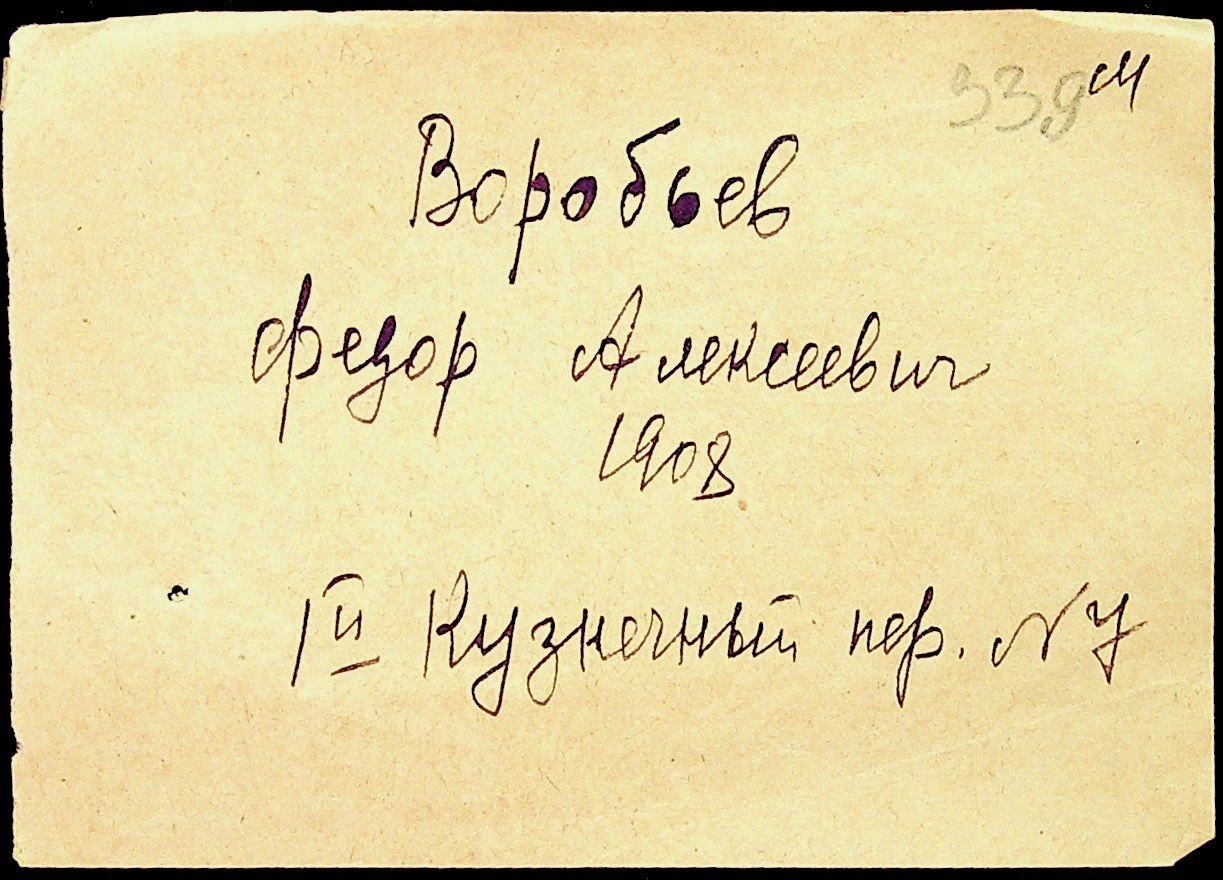 339 м
Воробьев
Федор Алексеевич
1908
1й Кузнечный пер. N 7